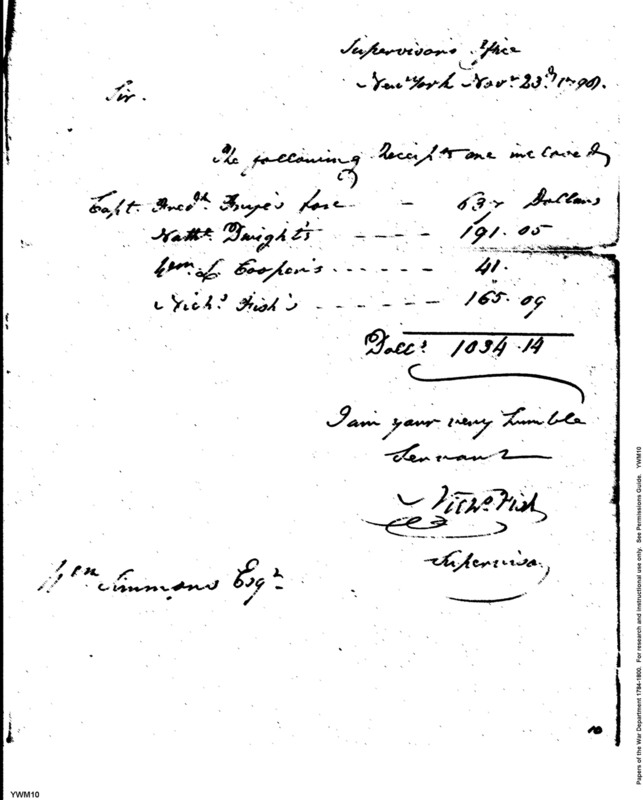 Supervisor's Office
New York Nov.r 23.d 1798.
Sir.
The following Receipts are inclosed
Capt. Fred.k Frye's for - - 637 Dollars
Nath.l Dwight's - - - - 191.05
Wm Cooper's - - - - - 41.
Nich.s Fish's - - - - - - 165.09
Doll.s 1034.14
I am your very humble
Servant
Nich.s Fish
Supervisor
Wm Simmons Esq.r
10
YWM10
Papers of the War Department 1784-1800. For research and instructional use only. See Permissions Guide. YWM10